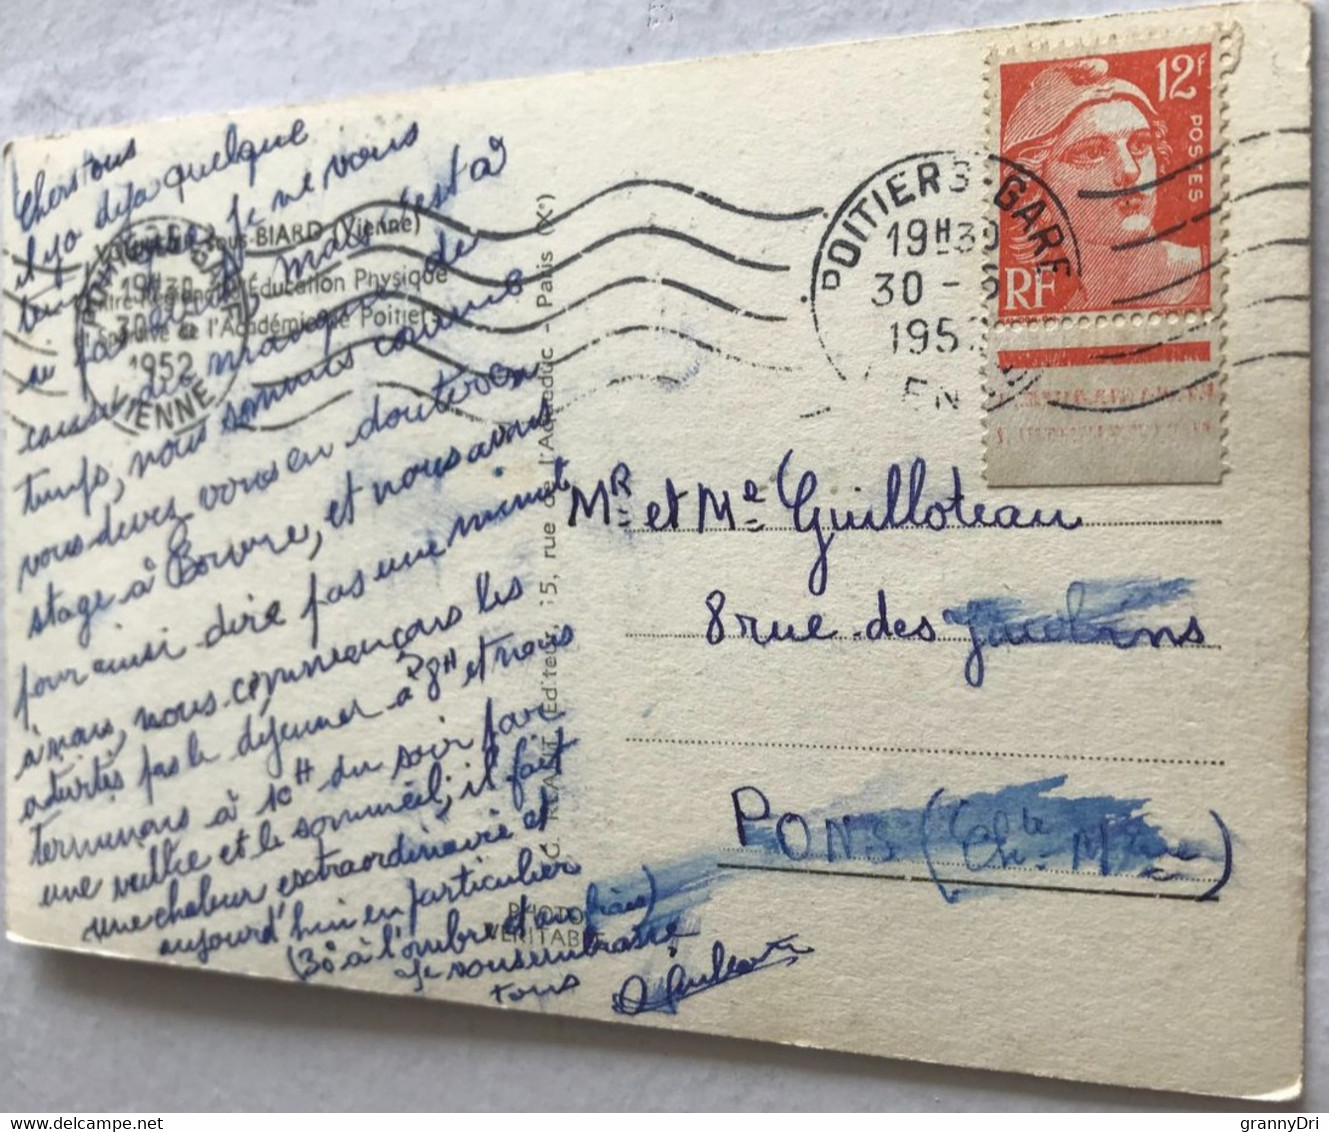 Chers tous
il y a déjà quelque
temps que je ne vous
ai pas écrit, mais c'est à
cause du manque de
temps, nous sommes comme
vous devez vous en douter en
stage à Boivre, et nous avons
pour ainsi dire pas une minute
à nous, nous commençons les
activités pas le déjeuner à 8H et nous
terminons à 10H du soir par
une veillée et le sommeil; il fait
une chaleur extraordinaire et
aujourd'hui en particulier
(30° à l'ombre et au frais)
Je vous embrasse
tous
sous-BIARD (Vienne)
Centre Régional d'Éducation Physique
et Sportive de l'Académie de Poitiers
19H30
30
1952
VIENNE
Editeur, 15, rue de l'Aqueduc - Paris (Xe)
PHOTO
VÉRITABLE
POITIERS-GARE
19H30
30 -
1952
12F
POSTES
RF
Mr et Me Guilloteau
8 rue des Jacobins
PONS (
Ch. Mme)
grannyDri
delcampe.net